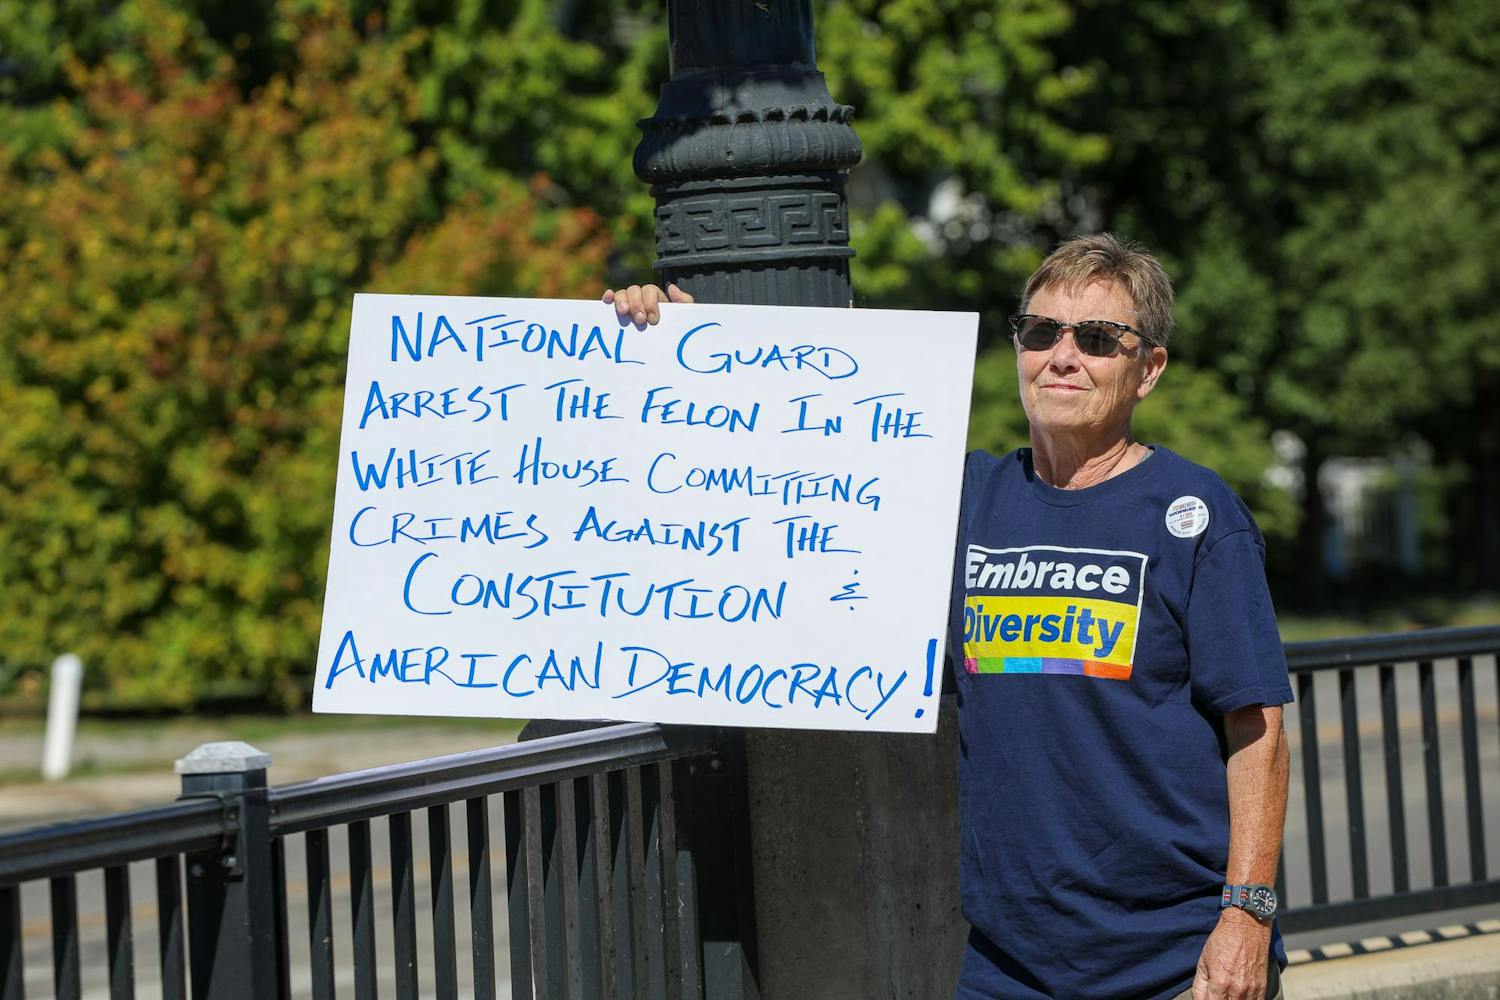 NATIONAL GUARD
ARREST THE FELON IN THE
WHITE HOUSE COMMITTING
CRIMES AGAINST THE
CONSTITUTION &
AMERICAN DEMOCRACY!
Embrace
Diversity
WORKERS